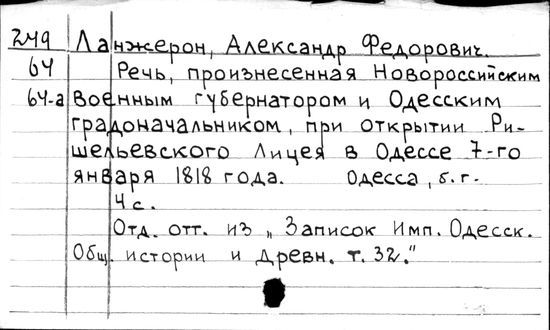 249 Ланжерон, Александр Федорович.
64 Речь, произнесенная Новороссийским
64-а военным губернатором и Одесским
градоначальником, при открытии Ри-
шельевского Лицея в Одессе 7-го
января 1818 года. Одесса, б.г.
4 с.
Отд. отт. из „Записок Имп. Одесск.
Общ. истории и древн. т. 32."